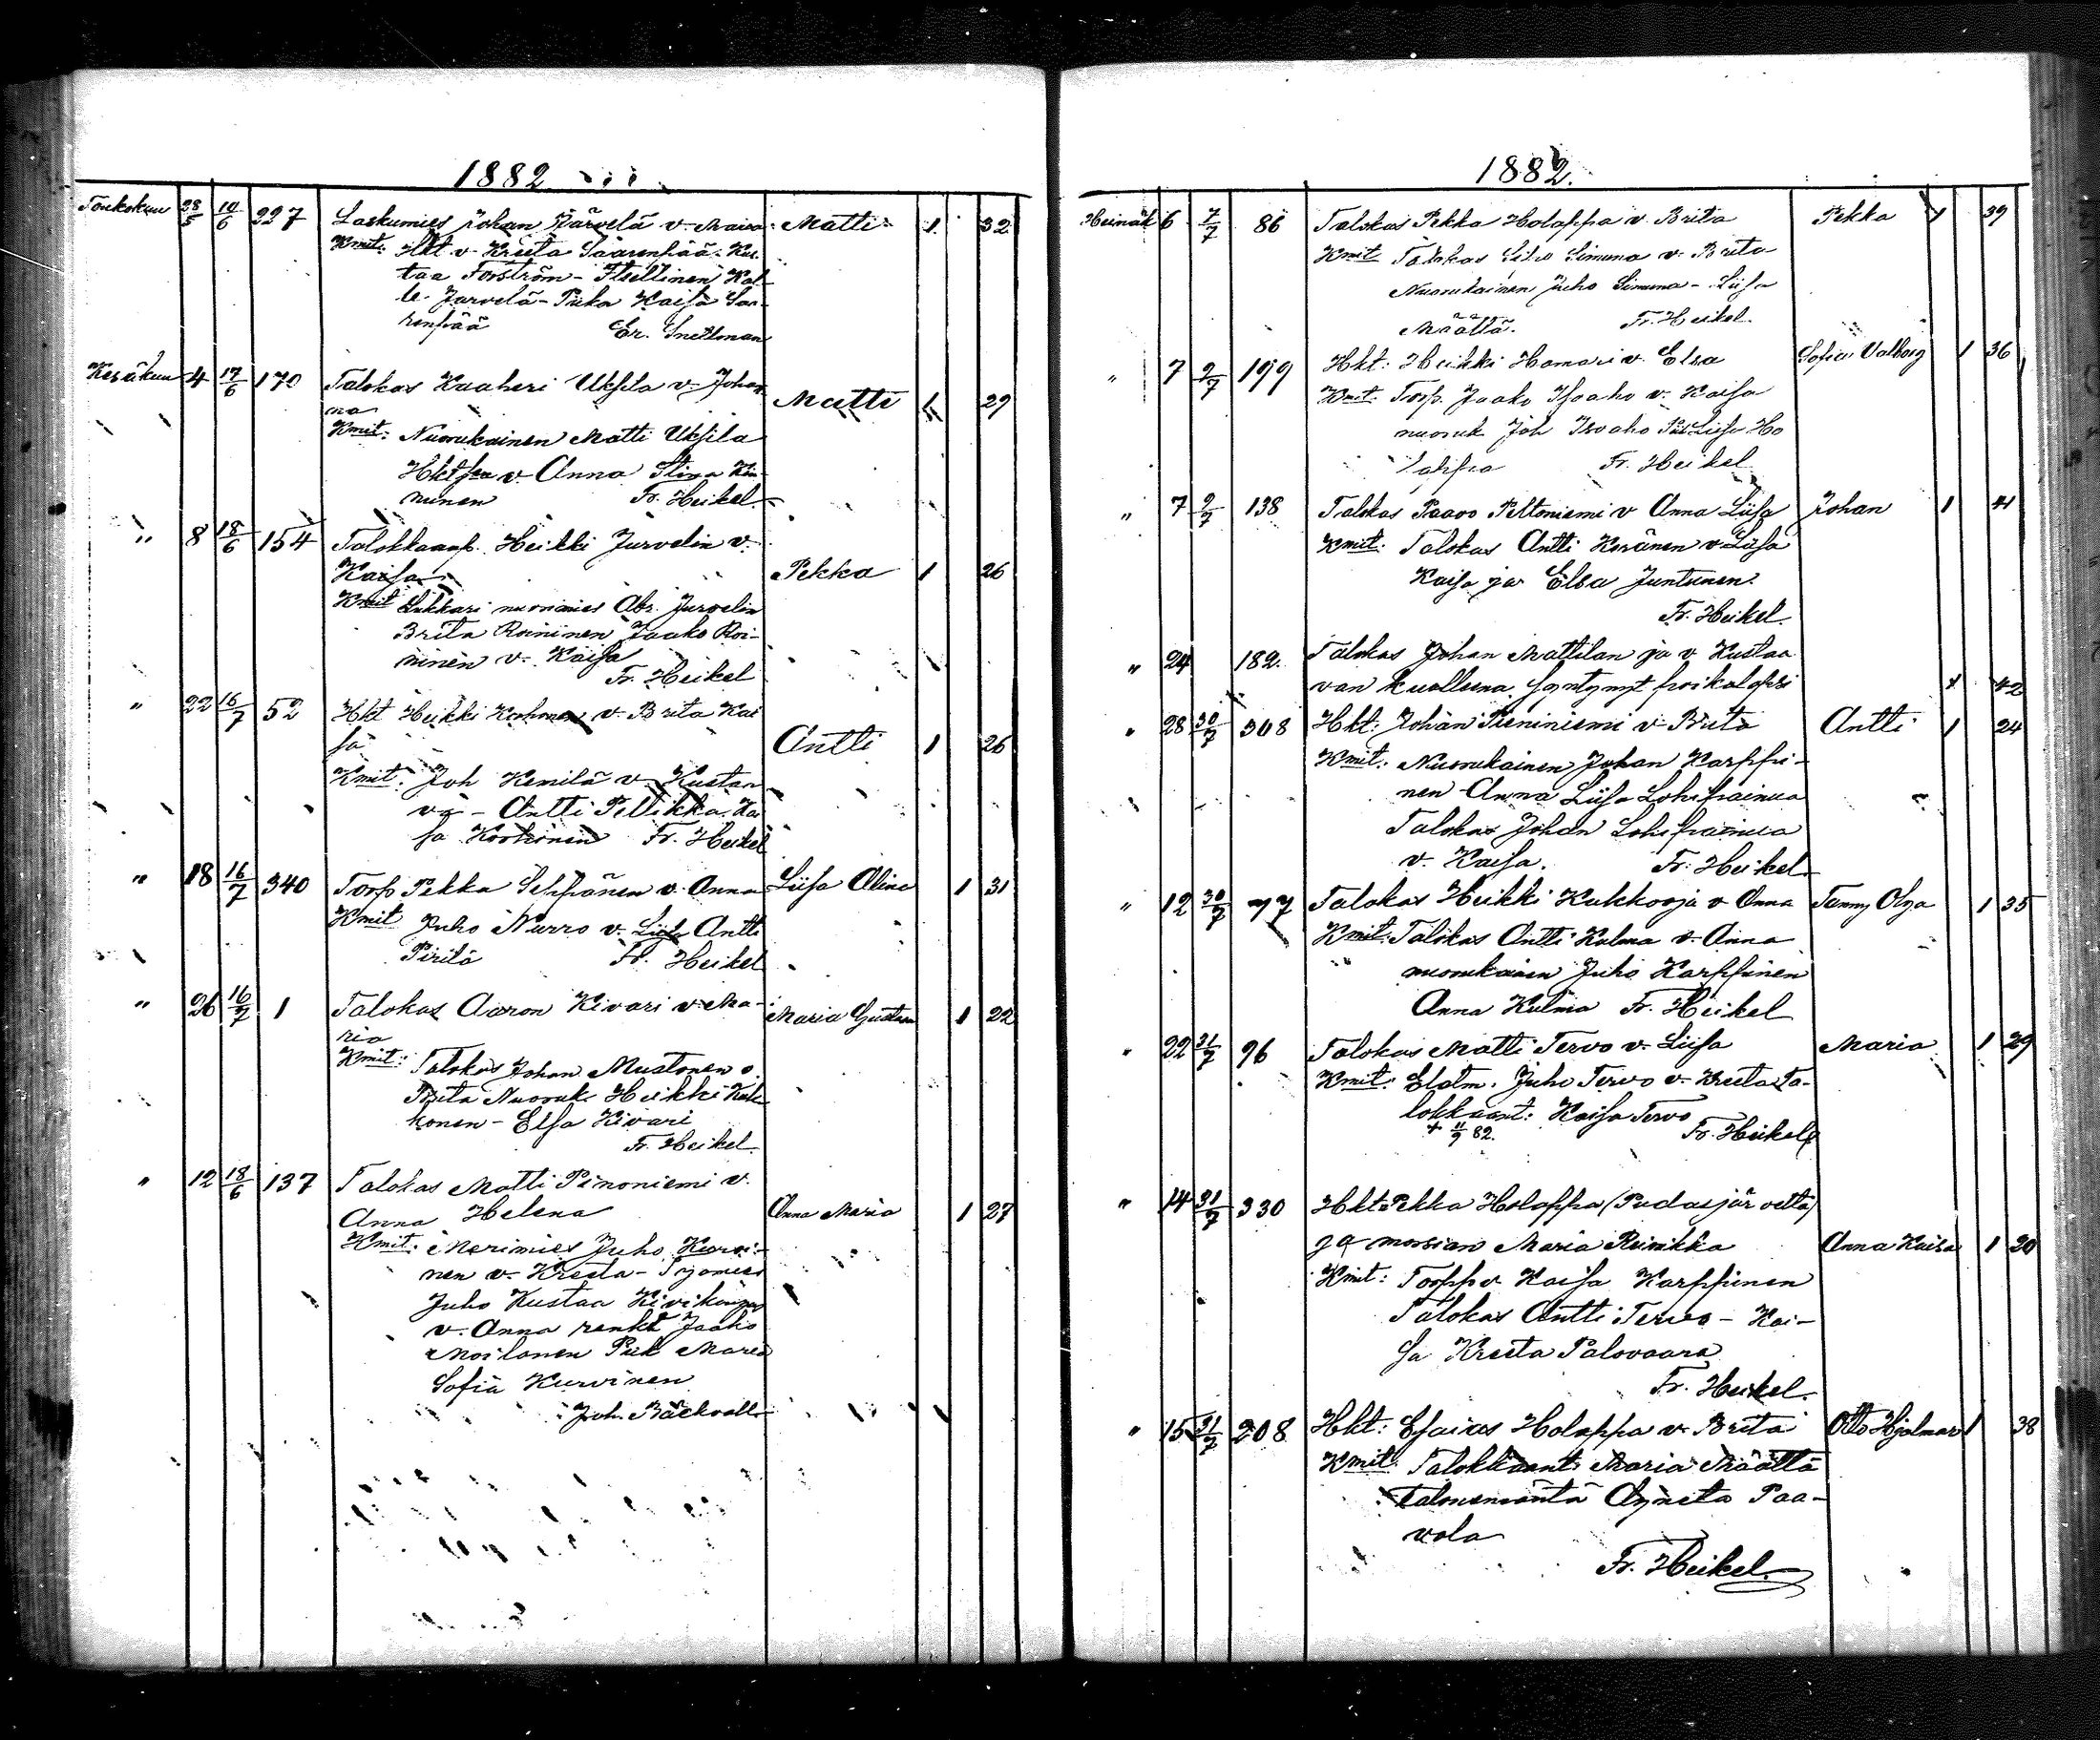 1882
Toukokuu 28/5 10/6 227 Laskumies Johan Järvelä v. Maria Matti 1 32
Kmit: Hkt v. Kreeta Saarenpää - Kus-
taa Forström - Itsellinen Kal-
le Jarvelä - Piika Kaisa Saa-
renpää Er. Snellman
Kesäkuu 4 17/6 170 Talokas Kaaheri Uksila v. Johan-
na Matti 1 29
Kmit: Nuorukainen Matti Uksila
v. Anna Stina
Fr. Heikel
" 8 18/6 154 Talokkaanp. Heikki Jurvelin v.
Kaisa Pekka 1 26
Kmit Lukkari nuorimies Abr. Jurvelin
Brita Roininen Jaako Roi-
ninen v. Kaisa
Fr. Heikel
" 22 16/7 52 Hkt Heikki v. Brita Kai
sa Antti 1 26
Kmit: Joh Kemilä v. Kustaa
va - Antti Pellikka Kai
sa Fr. Heikel
" 18 16/7 340 Torp Pekka Seppänen v. Anna Liisa Alina 1 31
Kmit Juho Nurro v. Liisa Antti
Piritä Fr. Heikel
" 26 16/7 1 Talokas Aaron Kivari v. Ma-
ria Maria Gustava 1 22
Kmit: Talokas Johan Mustonen v.
Brita Nuoruk. Heikki
konen - Elsa Kivari
Fr. Heikel
" 12 18/6 137 Talokas Matti Pinoniemi v.
Anna Helena Anna Maria 1 27
Kmit: Merimies Juho Kurvi-
nen v. Kreeta - Työmies
Juho Kustaa Kivikangas
v. Anna renki Jaako
Moilanen Piik Maria
Sofia Kurvinen
Joh. Bäckvall
1882.
Heinäk 6 7/7 86 Talokas Pekka Holappa v. Brita Pekka 1 39
Kmit Talokas Simuna v. Brita
Nuorukainen Juho Simuna - Liisa
Määttä. Fr. Heikel.
" 7 9/7 199 Hkt: Heikki Hamari v. Elsa Sofia Valborg 1 36
Kmit: Torp. Jaako Isoaho v. Kaisa
nuoruk Joh Isoaho Piik Liisa Ho
lappa Fr. Heikel
" 7 9/7 138 Talokas Paavo Peltoniemi v Anna Liisa Johan 1 41
Kmit: Talokas Antti Keränen v Liisa
Kaisa ja Elsa Juntunen.
Fr. Heikel
" 24 182. Talokas Johan Mattilan ja v Kustaa
van kuolleena syntynyt poikalapsi 1 42
" 28 30/7 308 Hkt: Johan Pieniniemi v. Brita Antti 1 24
Kmit: Nuorukainen Johan Karppi-
nen Anna Liisa Lohipainua
Talokas Johan Lohipainua
v. Kaisa. Fr. Heikel
" 12 30/7 77 Talokas Heikki Kukkooja v Anna Fanny Olga 1 35
Kmit: Talokas Antti Kulma v. Anna
nuorukainen Juho Karppinen
Anna Kulma Fr. Heikel
" 22 31/7 96 Talokas Matti Tervo v. Liisa Maria 1 29
Kmit: Elatm. Juho Tervo v. Kreeta Ta-
lokkaant: Kaisa Tervo
+ 11/9 82. Fr. Heikel
" 14 31/7 330 Hkt Pekka Holappa (Pudasjärveltä)
ja morsian Maria Reinikka Anna Kaisa 1 20
Kmit: Torpp v Kaisa Karppinen
Talokas Antti Tervo - Kai-
sa Kreeta Palovaara
Fr. Heikel.
" 15 31/7 208 Hkt: Esaias Holappa v. Brita Otto Hjalmar 1 38
Kmit. Talokkaant. Maria Määttä
Talonemäntä Agneta Paa-
vola
Fr. Heikel